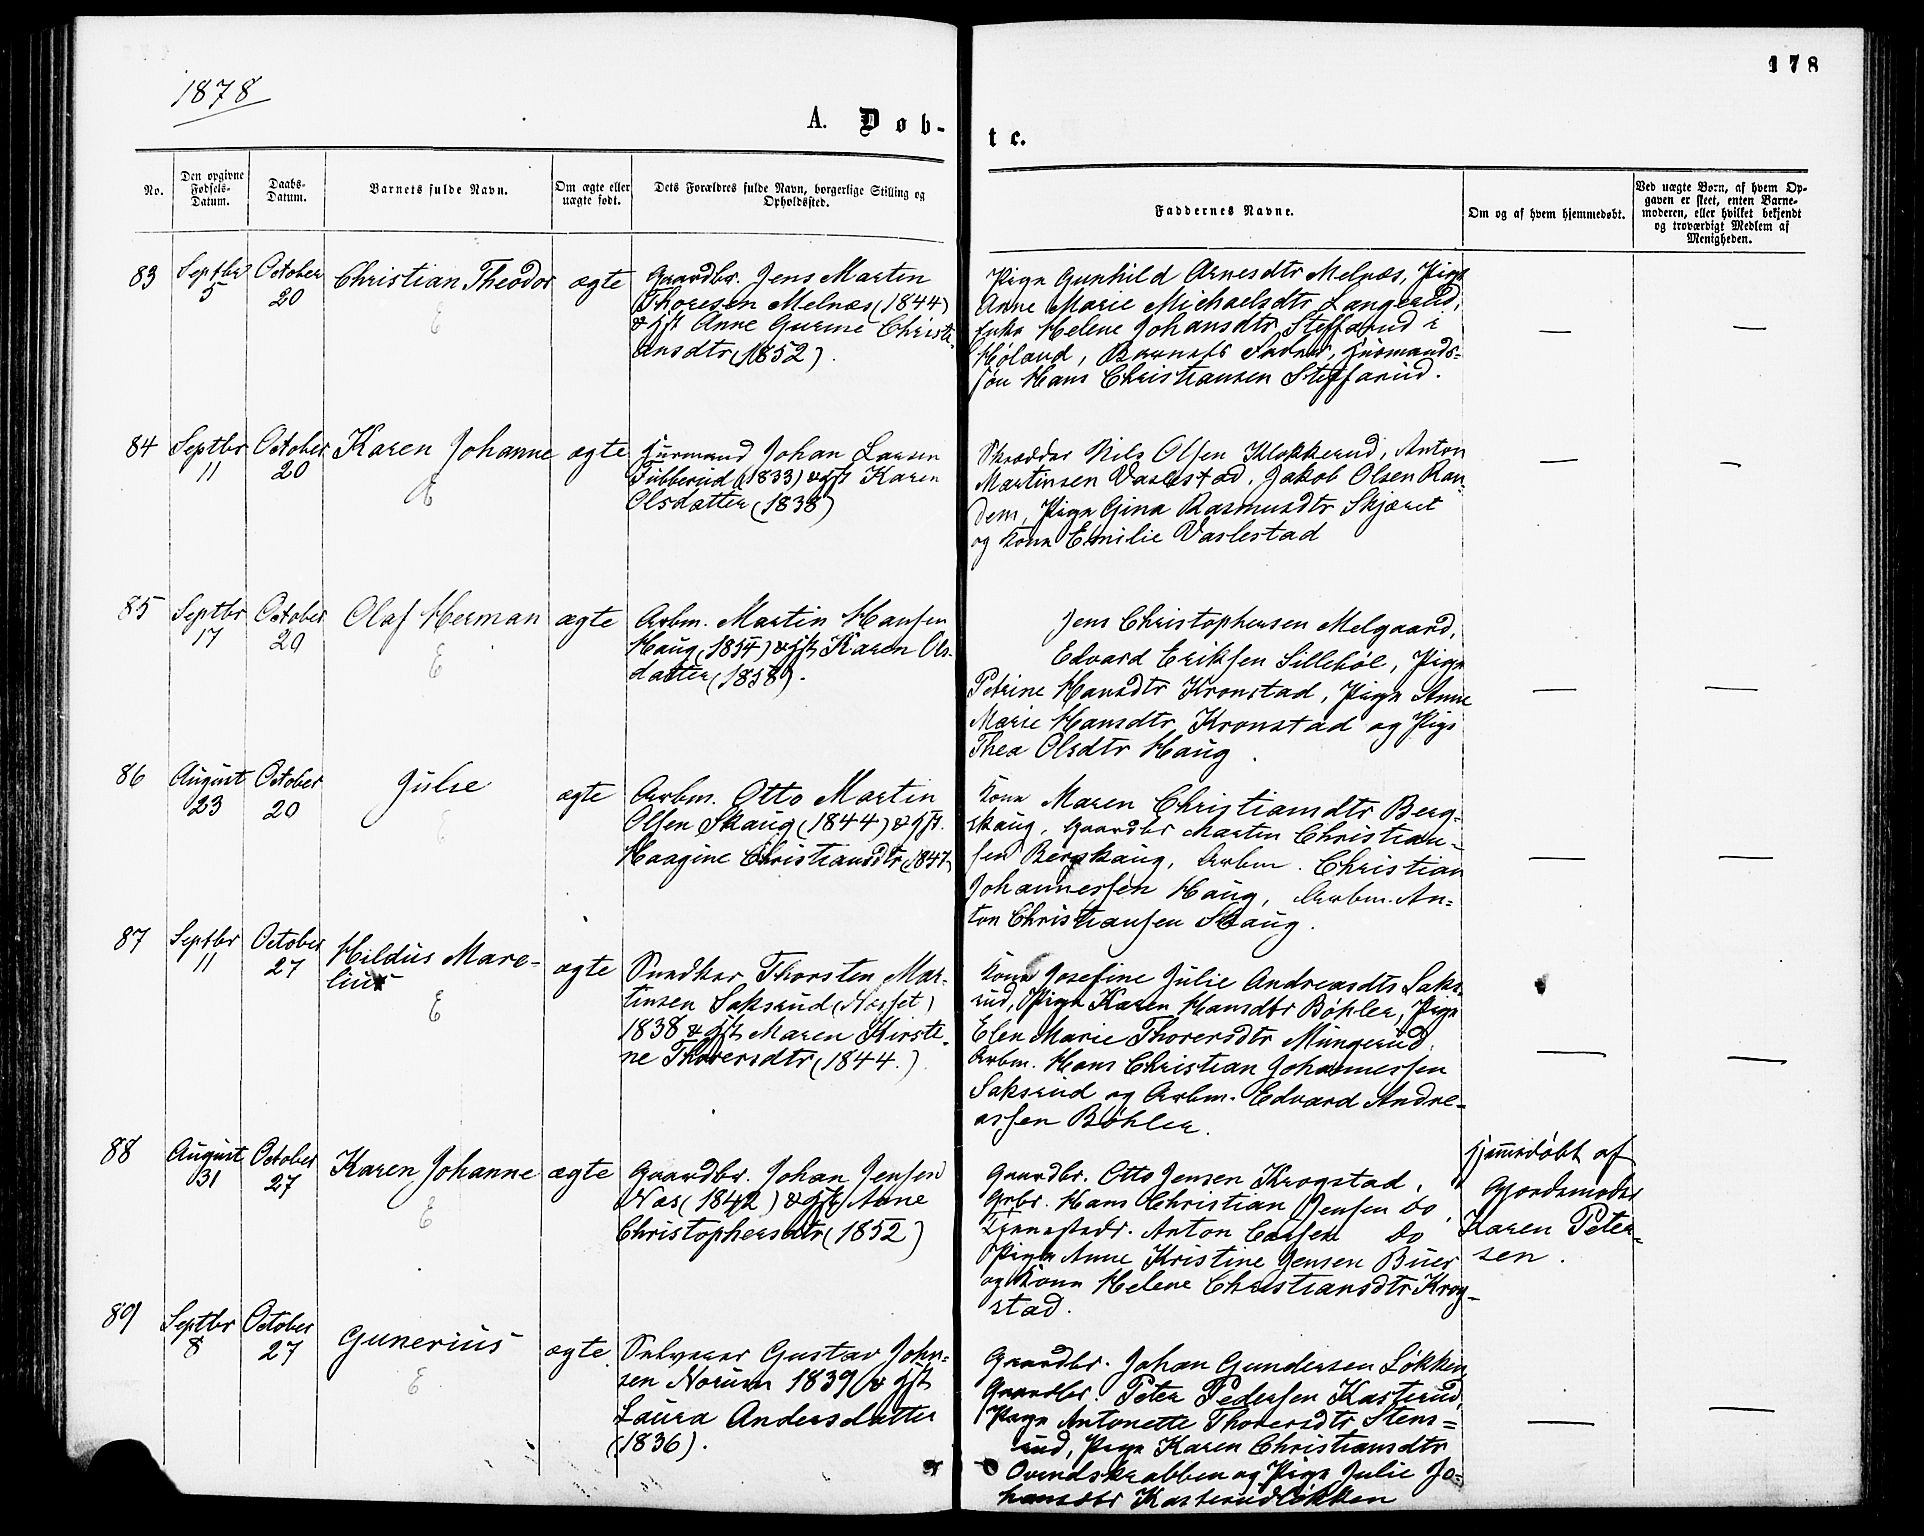 178
1878
A. Døb-
te.
No.
Den opgivne Fødsels-Datum.
Daabs-Datum.
Barnets fulde Navn.
Om ægte eller uægte født.
Dets Forældres fulde Navn, borgerlige Stilling og Opholdssted.
Faddernes Navne.
Om og af hvem hjemmedøbt.
Ved uægte Børn, af hvem Op-
gaven er skeet, enten Barne-
moderen, eller hvilket bekjendt
og troværdigt Medlem af
Menigheden.
83
Septbr
5
October
20
Christian Theodor
E
ægte
Gaardbr. Jens Martin
Thoresen Melnæs (1844)
& Hst Anne Gurine Christi-
ansdtr (1852).
Pige Gunhild Arnesdtr Melnæs, Pige
Anne Marie Michaelsdtr Langerud,
Enke Helene Johansdtr Steffarud i
Høland, Barnets Fader, Husmands-
søn Hans Christiansen Steffarud.
—
—
84
Septbr
11
October
20
Karen Johanne
E
ægte
Husmand Johan Larsen
Tubberud (1833) & Hst Karen
Olsdatter (1838)
Skrædder Nils Olsen Klokkerud, Anton
Martinsen Vaslestad, Jakob Olsen Ran-
dem, Pige Gina Rasmusdtr Skjæret
og Kone Emilie Vaslestad
—
—
85
Septbr
17
October
20
Olaf Herman
E
ægte
Arbm. Martin Hansen
Haug (1854) & Hst Karen Ols-
datter (1858).
Jens Christophersen Melgaard,
Edvard Eriksen Sillebøl, Pige
Petrine Hansdtr Kronstad, Pige Anne
Marie Hansdtr Kronstad og Pige
Thea Olsdtr Haug.
—
—
86
August
23
October
20
Julie
E
ægte
Arbm. Otto Martin
Olsen Skaug (1844) & Hst.
Haagine Christiansdtr (1847)
Kone Maren Christiansdtr Berg-
skaug, Gaardbr Martin Christian-
sen Bergskaug, Arbm. Christian
Johannessen Haug, Arbm. An-
ton Christiansen Skaug.
—
—
87
Septbr
11
October
27
Hildus Mare-
lius
E
ægte
Snedker Thorsten Mar-
tinsen Saksrud (Næsset)
1838 & Hst Maren Kirsti-
ne Thorersdtr (1844.)
Kone Josefine Julie Andreasdtr Saks-
rud, Pige Karen Hansdtr Bøhler, Pige
Elen Marie Thorersdtr Mungerud,
Arbm. Hans Christian Johannessen
Saksrud og Arbm. Edvard Andre-
assen Bøhler.
—
—
88
August
31
October
27
Karen Johanne
E
ægte
Gaardbr. Johan Jensen
Næs (1842) & Hst Anne
Christophersdtr (1852)
Gaardbr. Otto Jensen Krogstad,
Grbr. Hans Christian Jensen do,
Anton do
Pige Anne Kristine Jensen Buer
og Kone Helene Christiansdtr Krog-
stad.
Hjemmedøbt af
Gjordemoder
Karen Peter-
sen.
89
Septbr
8
October
27
Gunerius
E
ægte
Selveier Gustav John-
sen Norum 1839 & Hst
Laura Andersdatter
(1836).
Gaardbr. Johan Gundersen Løkken,
Gaardbr. Peter Pedersen Kasterud,
Pige Antonette Thorersdtr Stens-
rud, Pige Karen Christiansdtr
Ovindskrabben og Pige Julie Jo-
hansdtr Kasterudløkken
—
—